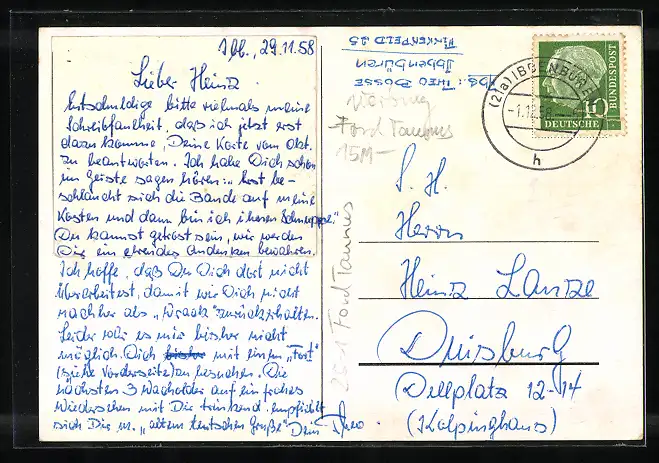 Ibb., 29.11.58
Lieber Heinz
Entschuldige bitte vielmals meine
Schreibfaulheit, daß ich jetzt erst
dazu komme, Deine Karte vom Okt.
zu beantworten. Ich habe Dich schon
im Geiste sagen hören... erst be-
schlaucht sich die Bande auf meine
Kosten und dann bin ich ihnen Schnuppe!
Du kannst getrost sein, wir werden
Dir ein ehrendes Andenken bewahren.
Ich hoffe, daß Du Dich dort nicht
überarbeitest, damit wir Dich nicht
nachher als "Wrack" zurückerhalten.
Leider war es mir bisher nicht
möglich, Dich bisher mit einem "Ford"
(siehe Vorderseite) zu besuchen. Die
nächsten 3 Wacholder auf ein frohes
Wiedersehen mit Dir trinkend empfiehlt
sich Dir m. "altem deutschen Gruße" Dein Theo.
Abs.: THEO BOSSE
Ibbenbüren
FINKENFELD 25
Werbung
Ford Taunus
15M-
Ford Taunus
(21a) IBBENBÜREN
-1.12.58
h
10
DEUTSCHE
BUNDESPOST
S. H.
Herrn
Heinz Lanze
Duisburg
(Dellplatz 12-14
(Kolpinghaus)